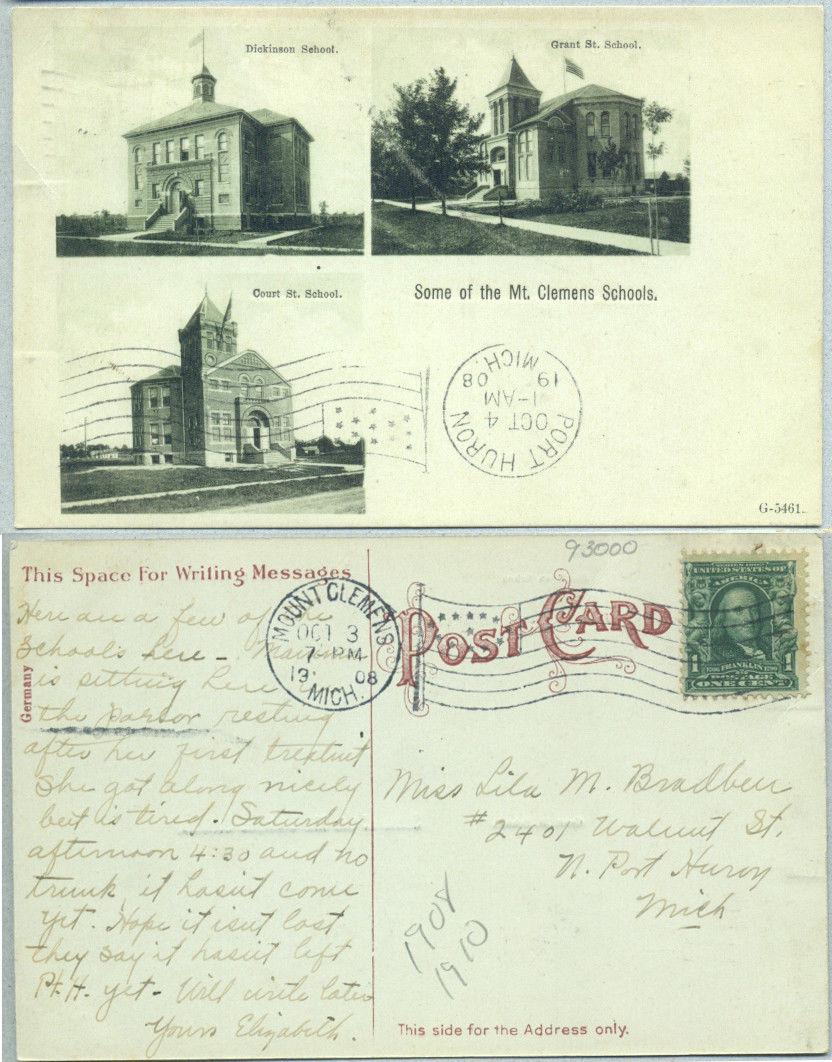 Dickinson School.
Grant St. School.
Court St. School.
Some of the Mt. Clemens Schools.
PORT HURON
OCT 4
1-AM
19 08
MICH.
G-5461.
93000
This Space For Writing Messages
Germany
Here are a few of the
Schools here - Mamma
is sitting here in
the parlor resting
after her first treatment
She got along nicely
but is tired. Saturday
afternoon 4:30 and no
trunk, it hasn't come
yet. Hope it isn't lost
they say it hasn't left
Pt. H. yet - Will write later
Yours Elizabeth.
MOUNT CLEMENS
OCT 3
7-PM
19 08
MICH.
POST CARD
SERIES 1902
UNITED STATES OF
AMERICA
1 FRANKLIN 1
POSTAGE
ONE CENT
Miss Lila M.
#2401 Walnut St.
N. Port Huron
Mich
1908
1910
This side for the Address only.